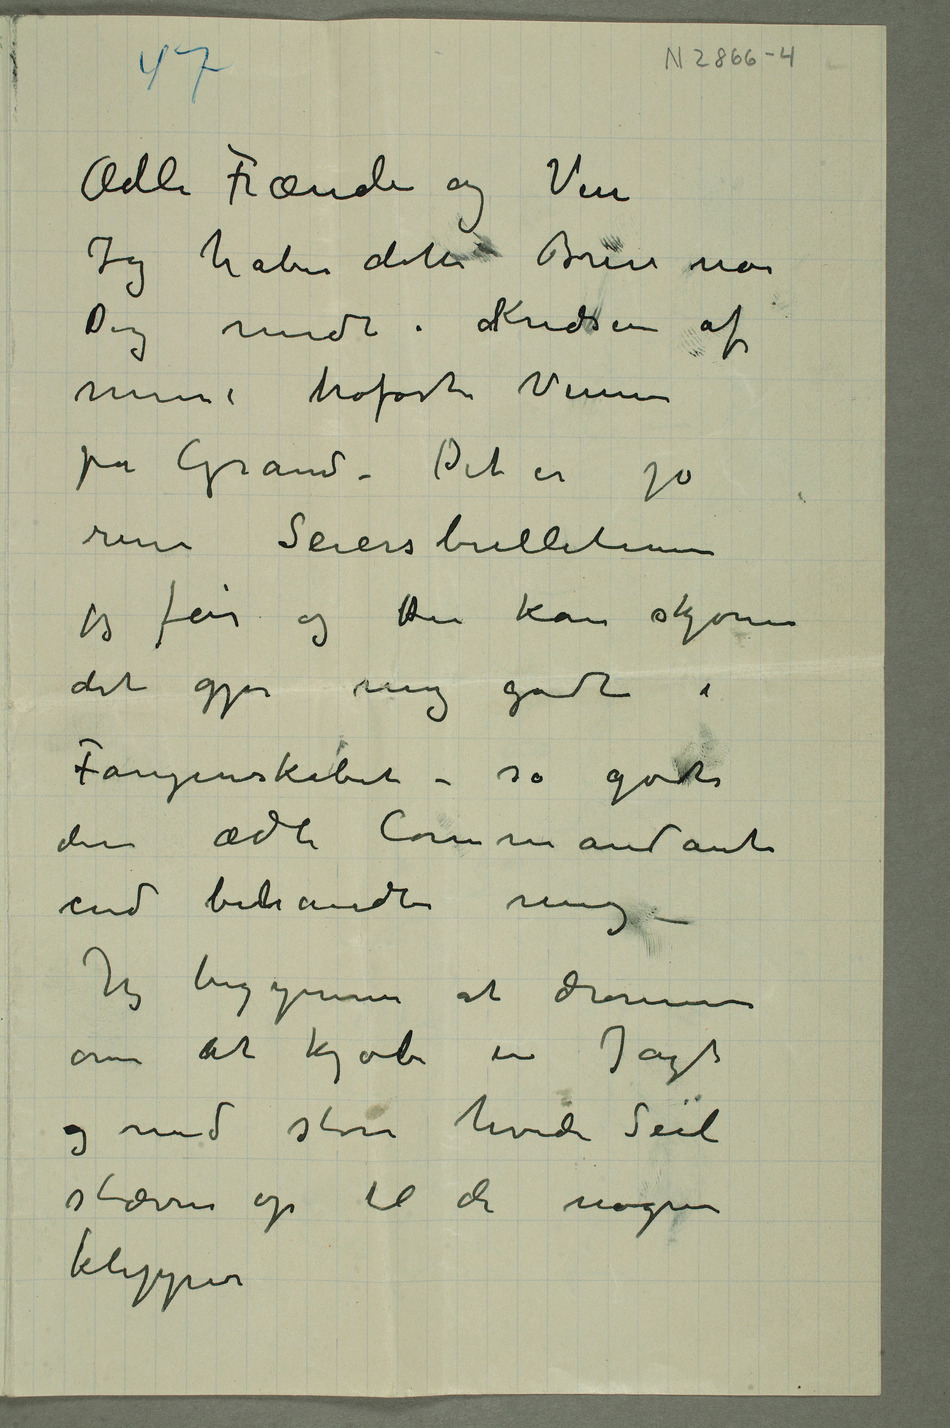 47
N 2866-4
Ædle Frænde og Ven
Jeg haber dette Brev når
Dig midt i Kredsen af
mine trofaste Venner
på Grand – Det er jo
rene Seiersbulletinner
jeg får og Du kan skjønne
det gjør mig godt i
Fangenskabet – så godt
den ædle Commandant
end behandler mig –
Jeg begynner at drømme
om at kjøbe en Jagt
og med store hvide Seil
stævne op til de nøgne
klipper